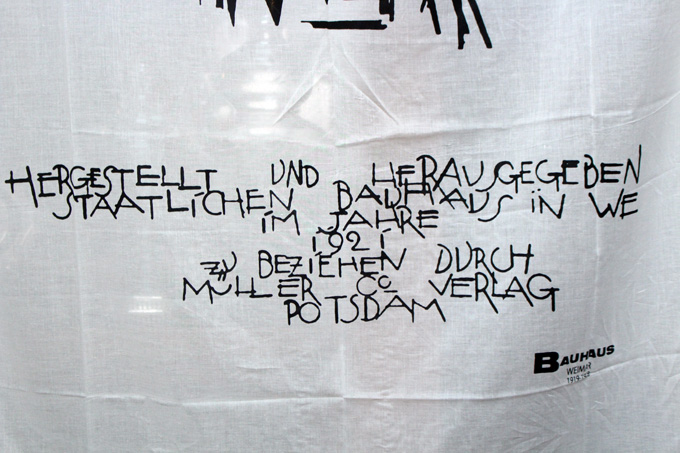 HERGESTELLT UND HERAUSGEGEBEN
STAATLICHEN BAUHAUS IN WE
IM JAHRE
1921
ZU BEZIEHEN DURCH
MÜLLER Co VERLAG
POTSDAM
BAUHAUS
WEIMAR